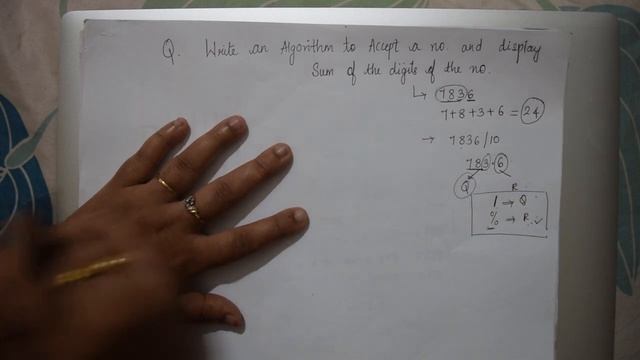 Q. Write an Algorithm to Accept a no. and display
Sum of the digits of the no.
↳ 7836
7+8+3+6 = 24
→ 7836/10
783.6
Q R
/ → Q
% → R ✓